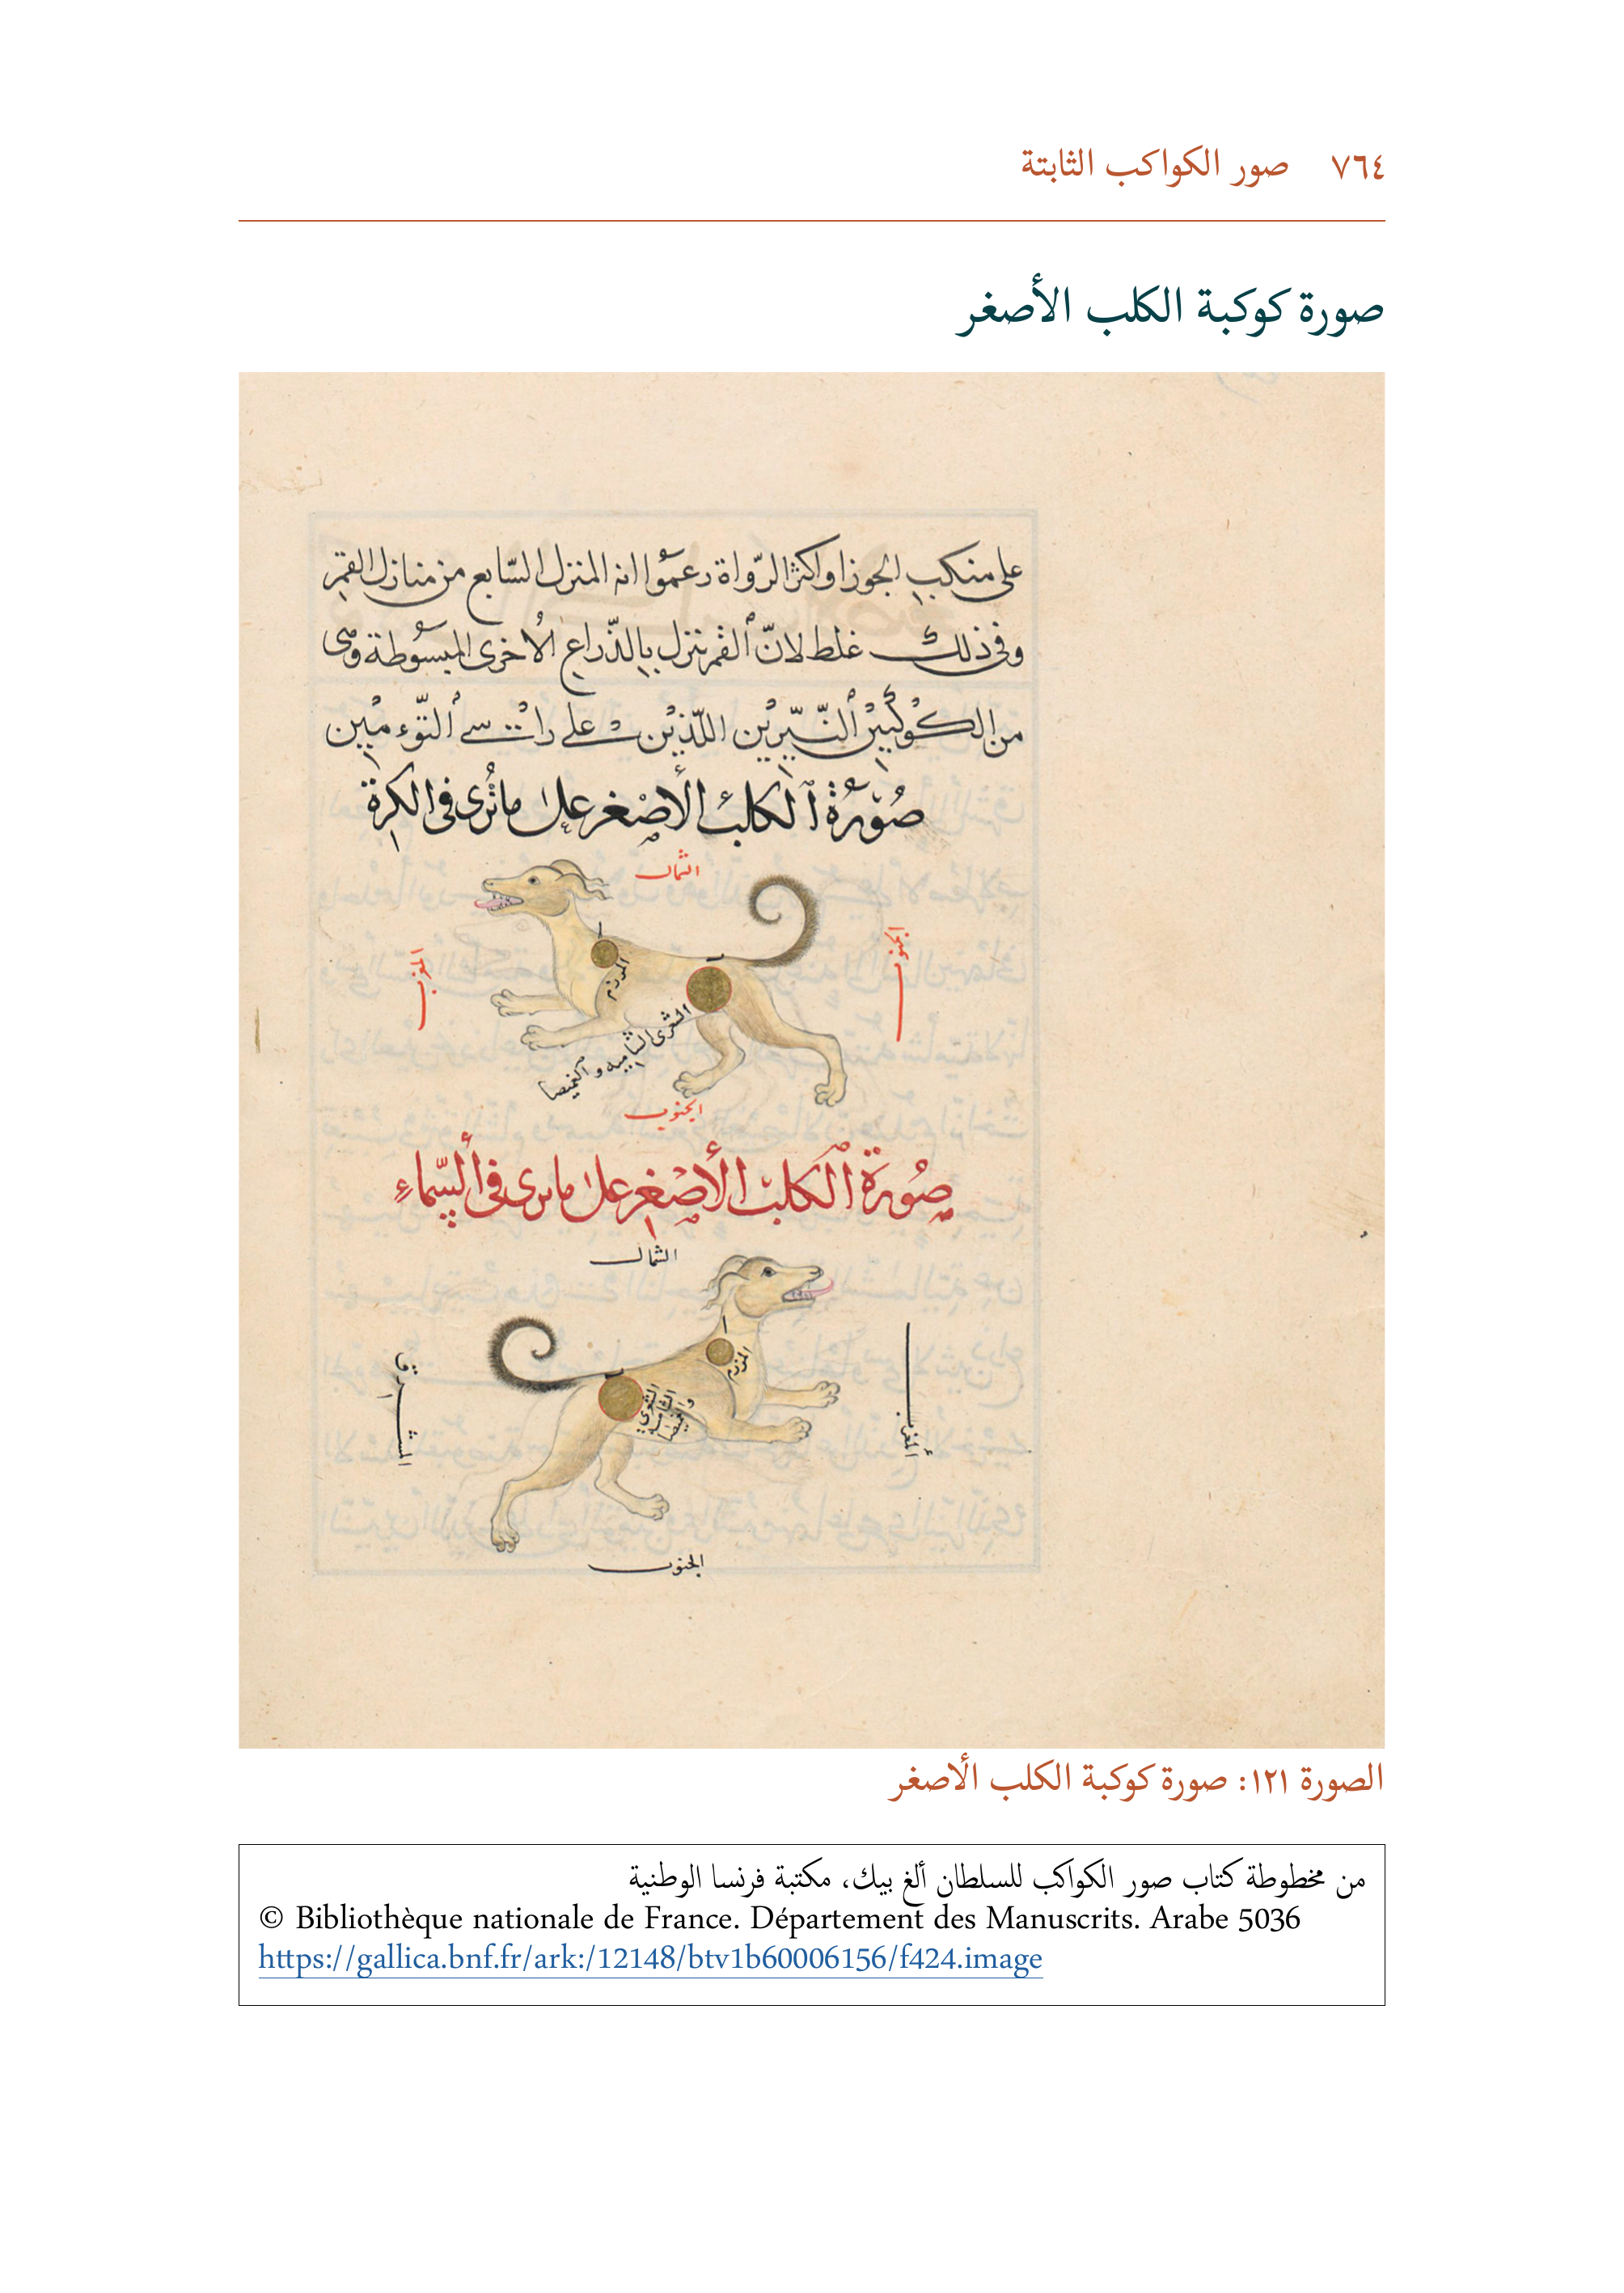 ٧٦٤ صور الكواكب الثابتة
صورة كوكبة الكلب الأصغر
على منكب الجوزا واكثر الرّواة زعموا انه المنزل السّابع من منازل القمر
وفى ذلك غلط لانّ القمر ينزل بالذّراع الاخرى المبسوطة وهى
من الكوكبين النّيّرين اللّذين على راسى التّوءمين
صورة الكلب الأصغر على ما ترى فى الكرة
الشمال
الجنوب
المغرب
المرزم
الشعرى الشاميه و الغميصا
الجنوب
صورة الكلب الأصغر على ما يرى فى السّماء
الشمال
المغرب
المشرق
المرزم
الشعرى
الشاميه
والغميصا
الجنوب
الصورة ١٢١: صورة كوكبة الكلب الأصغر
من مخطوطة كتاب صور الكواكب للسلطان ألغ بيك، مكتبة فرنسا الوطنية
© Bibliothèque nationale de France. Département des Manuscrits. Arabe 5036
https://gallica.bnf.fr/ark:/12148/btv1b60006156/f424.image